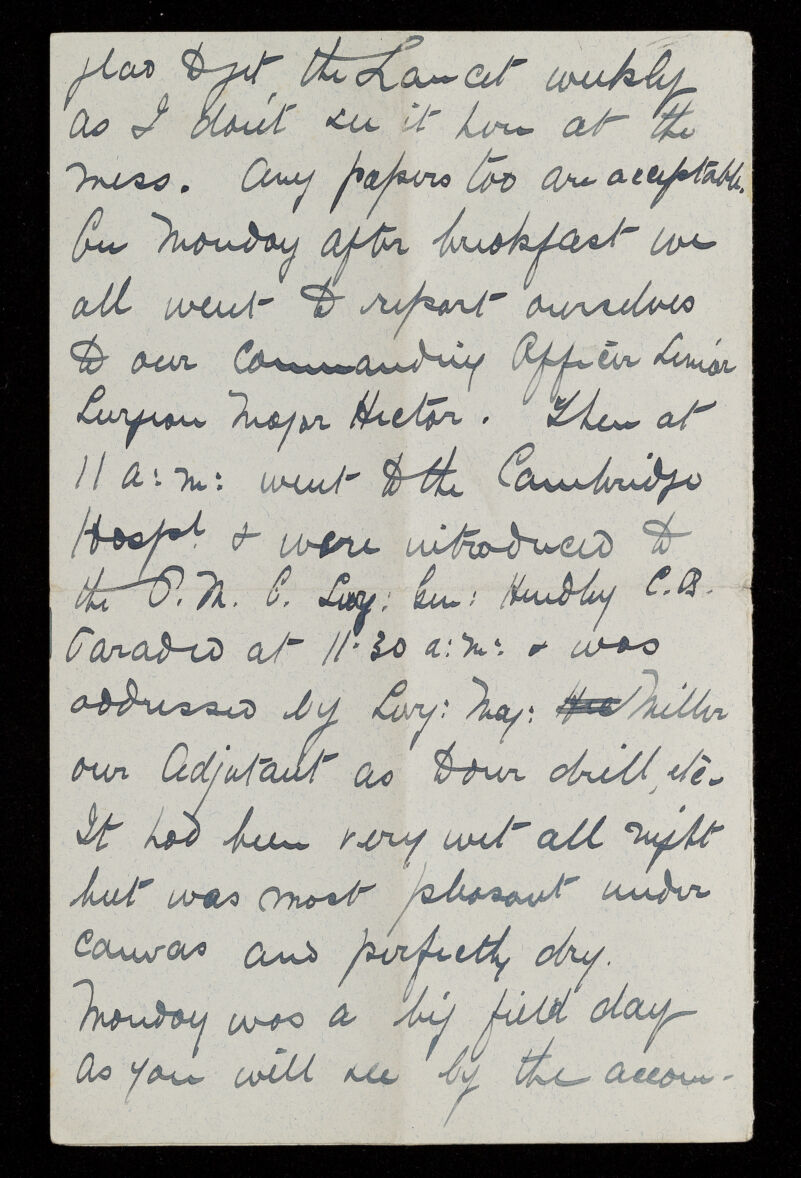 glad to get the Lancet weekly
as I don't see it here at the
mess. Any papers too are acceptable.
On Monday after breakfast we
all went to report ourselves
to our Commanding Officer Senior
Surgeon Major Hector. Then at
11 a:m: went to the Cambridge
Hospl & were introduced to
the P. M. O. Surg: Gen: Hendley C.B.
Paraded at 11.30 a:m: & was
addressed by Surg: Maj: Miller
our Adjutant as to our drill, etc.
It had been very wet all night
but was most pleasant under
canvas and perfectly dry.
Monday was a big field day
as you will see by the accom-